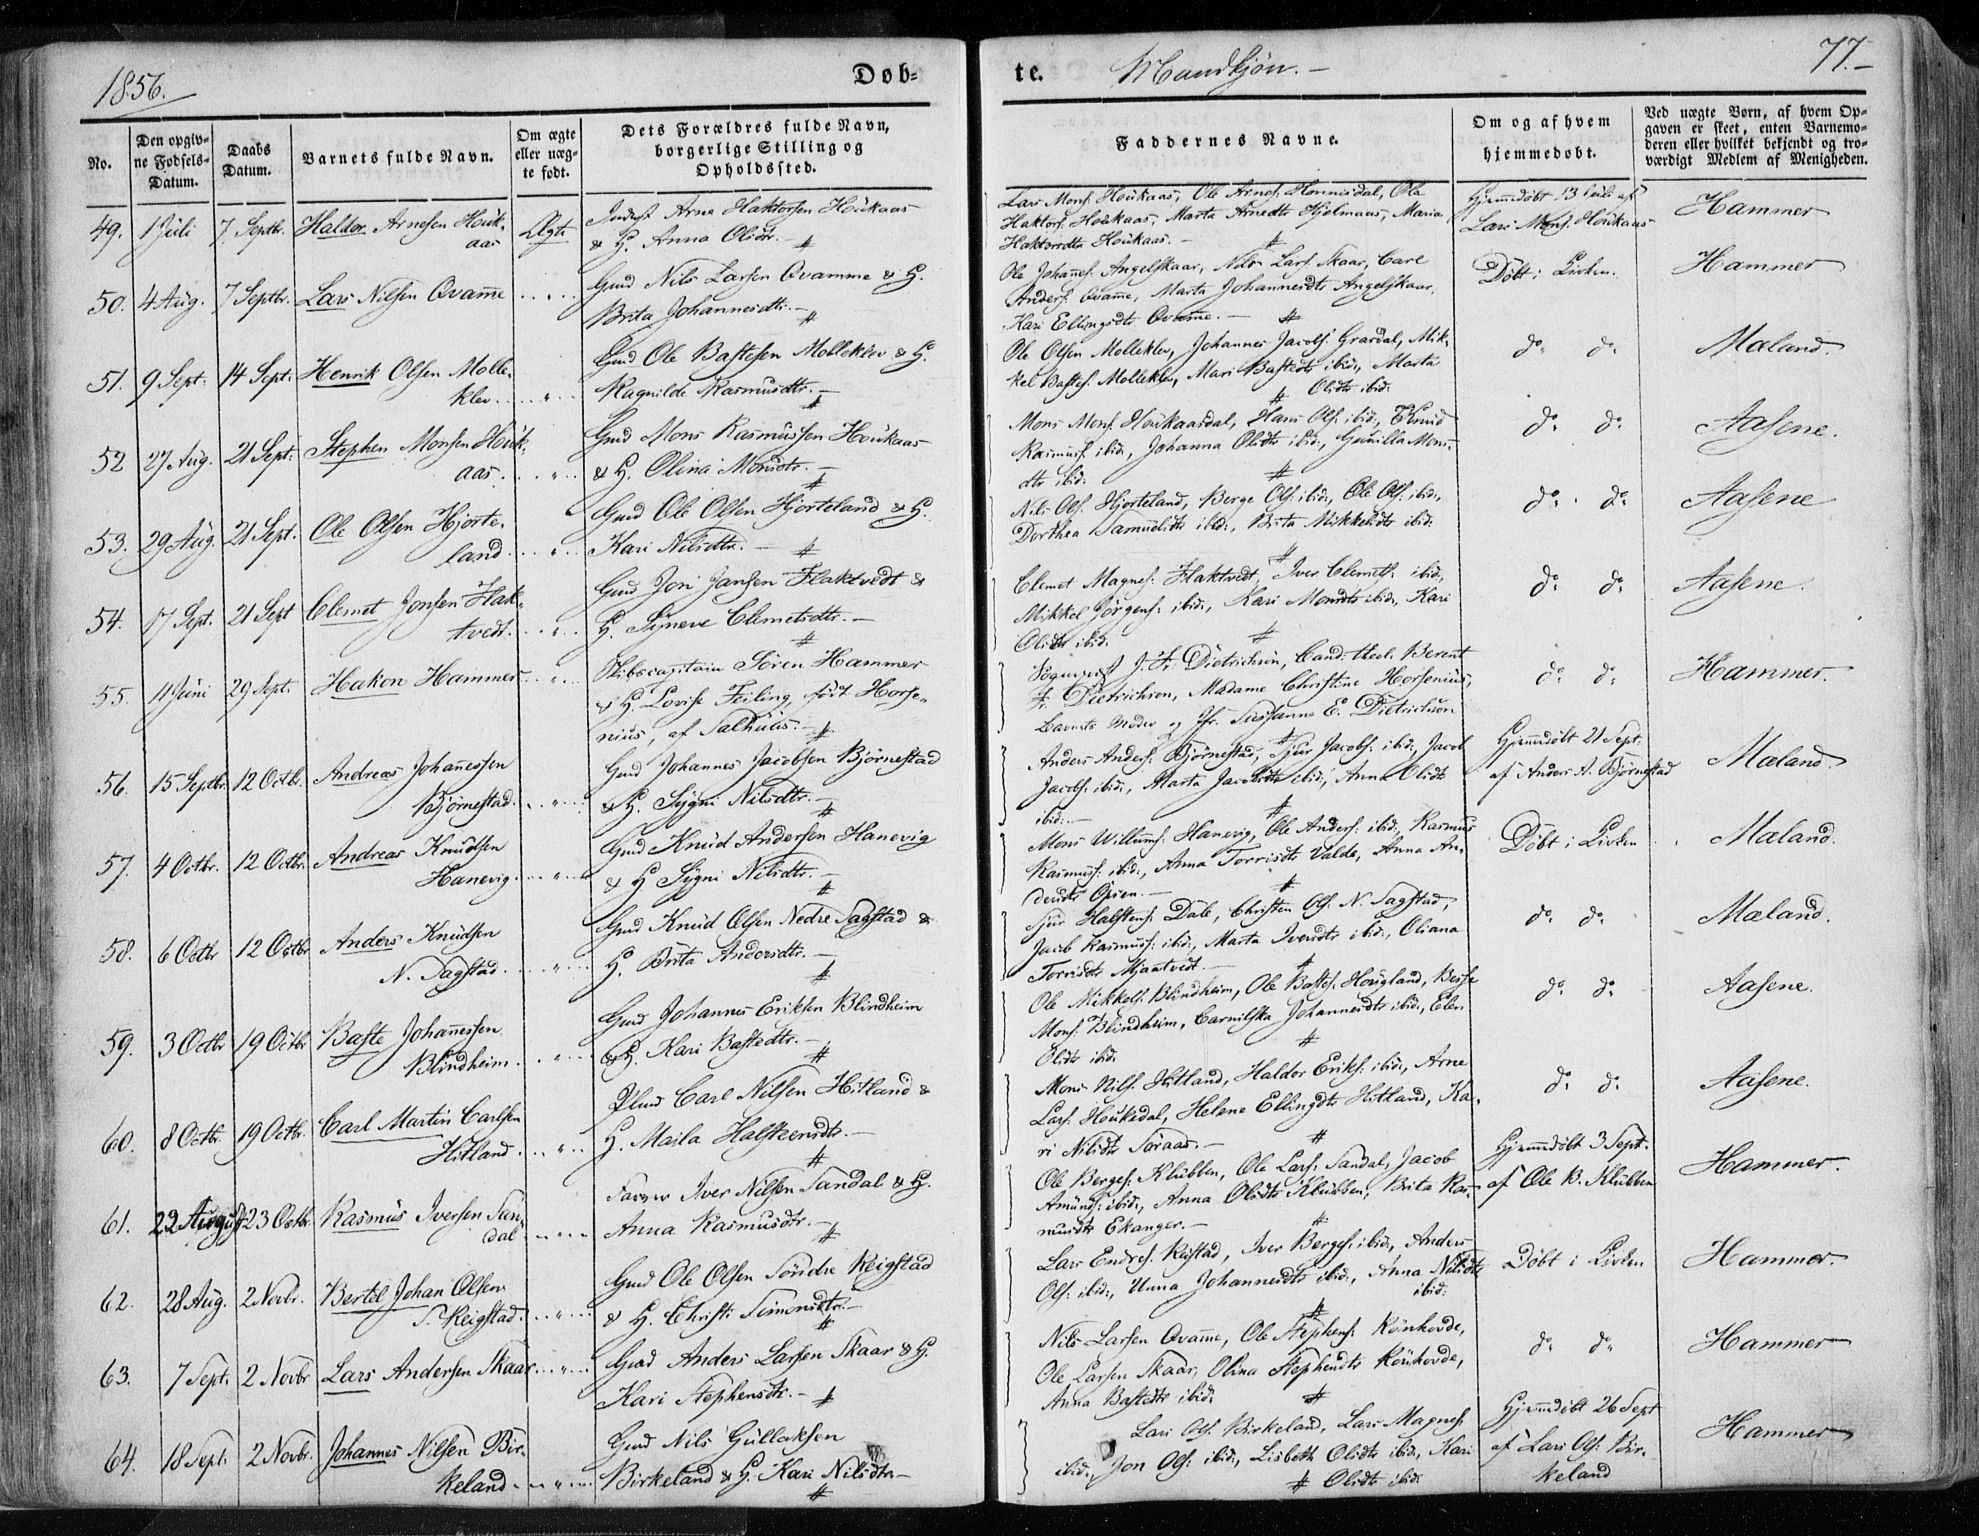 1856.
Døb-
te.
Mandkjøn.
77.
No.
Den opgiv-
ne Fødsels-
Datum.
Daabs
Datum.
Barnets fulde Navn.
Om ægte
eller uæg-
te født.
Dets Forældres fulde Navn,
borgerlige Stilling og
Opholdssted.
Faddernes Navne.
Om og af hvem
hjemmedøbt.
Ved uægte Børn, af hvem Op-
gaven er skeet, enten Barnemo-
deren eller hvilket bekjendt og tro-
værdigt Medlem af Menigheden.
49. 1 Juli 7 Septbr. Haldor Arnesen Houk-
aas Ægte
Arne Haktorsen Houkaas
& H. Anna Olsdtr.
Lars Mons. Houkaas, Ole Arnes. Hommisdal, Ole
Haktors. Houkaas, Marta Arnedtr Hjelmaas, Maria
Haktorsdtr Houkaas.
Hjemmedøbt 13 Juli af
Lars Mons. Houkaas
Hammer
50. 4 Aug. 7 Septbr. Lars Nilsen Qvamme
Gmd Nils Larsen Qvamme & H.
Brita Johannesdtr.
Ole Johannes. Angelskaar, Nils Lars. Skaar, Care
Anders. Qvamme, Marta Johannesdtr Angelskaar,
Kari Ellingsdtr Qvamme.
Døbt i Kirken.
Hammer
51. 9 Sept. 14 Sept. Henrik Olsen Molle-
klev
Gmd Ole Bastesen Molleklev & H.
Ragnilde Rasmusdtr.
Ole Olsen Molleklev, Johannes Jacobs. Grasdal, Mik-
kel Bastes. Molleklev, Mari Bastedtr ibid., Marta
Olsdtr ibid.
do. do.
Mæland.
52 27 Aug. 21 Sept. Stephen Monsen Houk-
aas
Gmd Mons Rasmussen Houkaas
& H. Olina Monsdtr.
Mons Mons. Houkaasdal, Hans Ols. ibid., Knud
Rasmus. ibid., Johanna Olsdtr ibid., Gunilla Mons-
dtr ibid.
do. do.
Aasene.
53. 29 Aug. 21 Sept. Ole Olsen Hjorte-
land
Gmd Ole Olsen Hjorteland & H.
Kari Nilsdtr.
Nils Ols. Hjorteland, Berge Ols. ibid., Ole Ols. ibid.,
Dorthea Samuelsdtr ibid., Brita Mikkelsdtr ibid.
do. do.
Aasene
54. 17 Sept. 21 Sept Clemet Jonsen Hak-
tvedt.
Gmd Jon Jansen Haktvedt &
H. Synneve Clemetsdtr.
Clemet Magnes. Haktvedt, Iver Clemets. ibid.,
Mikkel Jørgens. ibid., Kari Monsdtr ibid., Kari
Olsdtr ibid.
do. do.
Aasene.
55. 11 Juni 29 Sept. Hakon Hammer
Skibscapitain Søren Hammer
& H. Lovise Feiling, født Horse-
nius, af Salhuus.
Sogneprest J. Fr. Dietrichson, Cand. theol. Berent
F. Dietrichson, Madame Christine Horsenius,
Barnets Moder og Jfr. Susanne E. Dietrichson
do. do.
Hammer.
56. 15 Septbr. 12 Octbr. Andreas Johannessen
Bjørnestad.
Gmd Johannes Jacobsen Bjørnestad
& H. Sygni Nilsdtr.
Anders Anders. Bjørnestad, Sjur Jacobs. ibid., Jacob
Jacobs. ibid., Marta Jacobsdtr ibid., Anna Olsdtr
ibid.
Hjemmedøbt 21 Sept.
af Anders A. Bjørnestad
Mæland.
57. 4 Octbr. 12 Octbr. Andreas Knudsen
Hanevig.
Gmd Knud Andersen Hanevig
& H Sygni Nilsdtr.
Mons Willums. Hanevig, Ole Anders. ibid., Rasmus
Rasmus. ibid., Anna Torrisdtr Valde, Anna An-
dersdtr Opsen.
Døbt i Kirken
Mæland.
58. 6 Octbr 12 Octbr Anders Knudsen
N. Sagstad.
Gmd Knud Olsen Nedre Sagstad &
H. Brita Andersdtr.
Sjur Halstens. Dale, Christen Ols. N. Sagstad,
Jacob Rasmus. ibid., Marta Iversdtr ibid., Oliana
Torrisdtr Mjaatvedt.
do. do.
Mæland.
59. 3 Octbr 19 Octbr Baste Johannessen
Blindheim.
Gmd Johannes Eriksen Blindheim
& H. Kari Bastedtr.
Ole Mikkels. Blindheim, Ole Bastes. Hougland, Besse
Mons. Blindheim, Carnilska Johannesdtr ibid., Elen
Olsdtr ibid.
do. do.
Aasene.
60. 8 Octbr. 19 Octbr. Carl Martin Carlsen
Hitland.
Carl Nilsen Hitland &
H. Maila Halstensdtr.
Mons Nils. Hitland, Haldor Eriks. ibid., Arne
Lars. Houkedal, Helene Ellingsdtr Hitland, Ka-
ri Nilsdtr Soraas.
do. do.
Aasene.
61. 22 August 23 Octbr. Rasmus Iversen San-
dal
Iver Nilsen Sandal & H.
Anna Rasmusdtr.
Ole Berges. Klubben, Ole Lars. Sandal, Jacob
Amunds. ibid., Anna Olsdtr Klubben, Brita Ras-
musdtr Ekanger.
Hjemmedøbt 3 Sept.
af Ole B. Klubben
Hammer.
62. 28 Aug. 2 Novbr. Bertil Johan Olsen
S. Reigstad.
Gmd Ole Olsen Søndre Reigstad
& H. Christi Simonsdtr.
Lars Endres. Reistad, Iver Berges. ibid., Anders
Ols. ibid., Unna Johannesdtr ibid., Anna Nilsdtr
ibid.
Døbt i Kirken
Hammer.
63. 7 Sept. 2 Novbr Lars Andersen Skaar
Gmd Anders Larsen Skaar & H.
Kari Stephensdtr.
Nils Larsen Qvamme, Ole Stephens. Rønhovde,
Ole Larsen Skaar, Olina Stephensdtr Rønhovde,
Anna Bastedtr ibid.
do. do.
Hammer
64. 18 Sept. 2 Novbr. Johannes Nilsen Bir-
keland
Gmd Nils Gullaksen
Birkeland & H. Kari Nilsdtr
Lars Ols. Birkeland, Lars Magnes.
ibid., Jon Ols. ibid., Lisbeth Olsdtr ibid., Kari
Olsdtr ibid.
Hjemmedøbt 26 Sept
af Lars Ols. Bir-
keland
Hammer